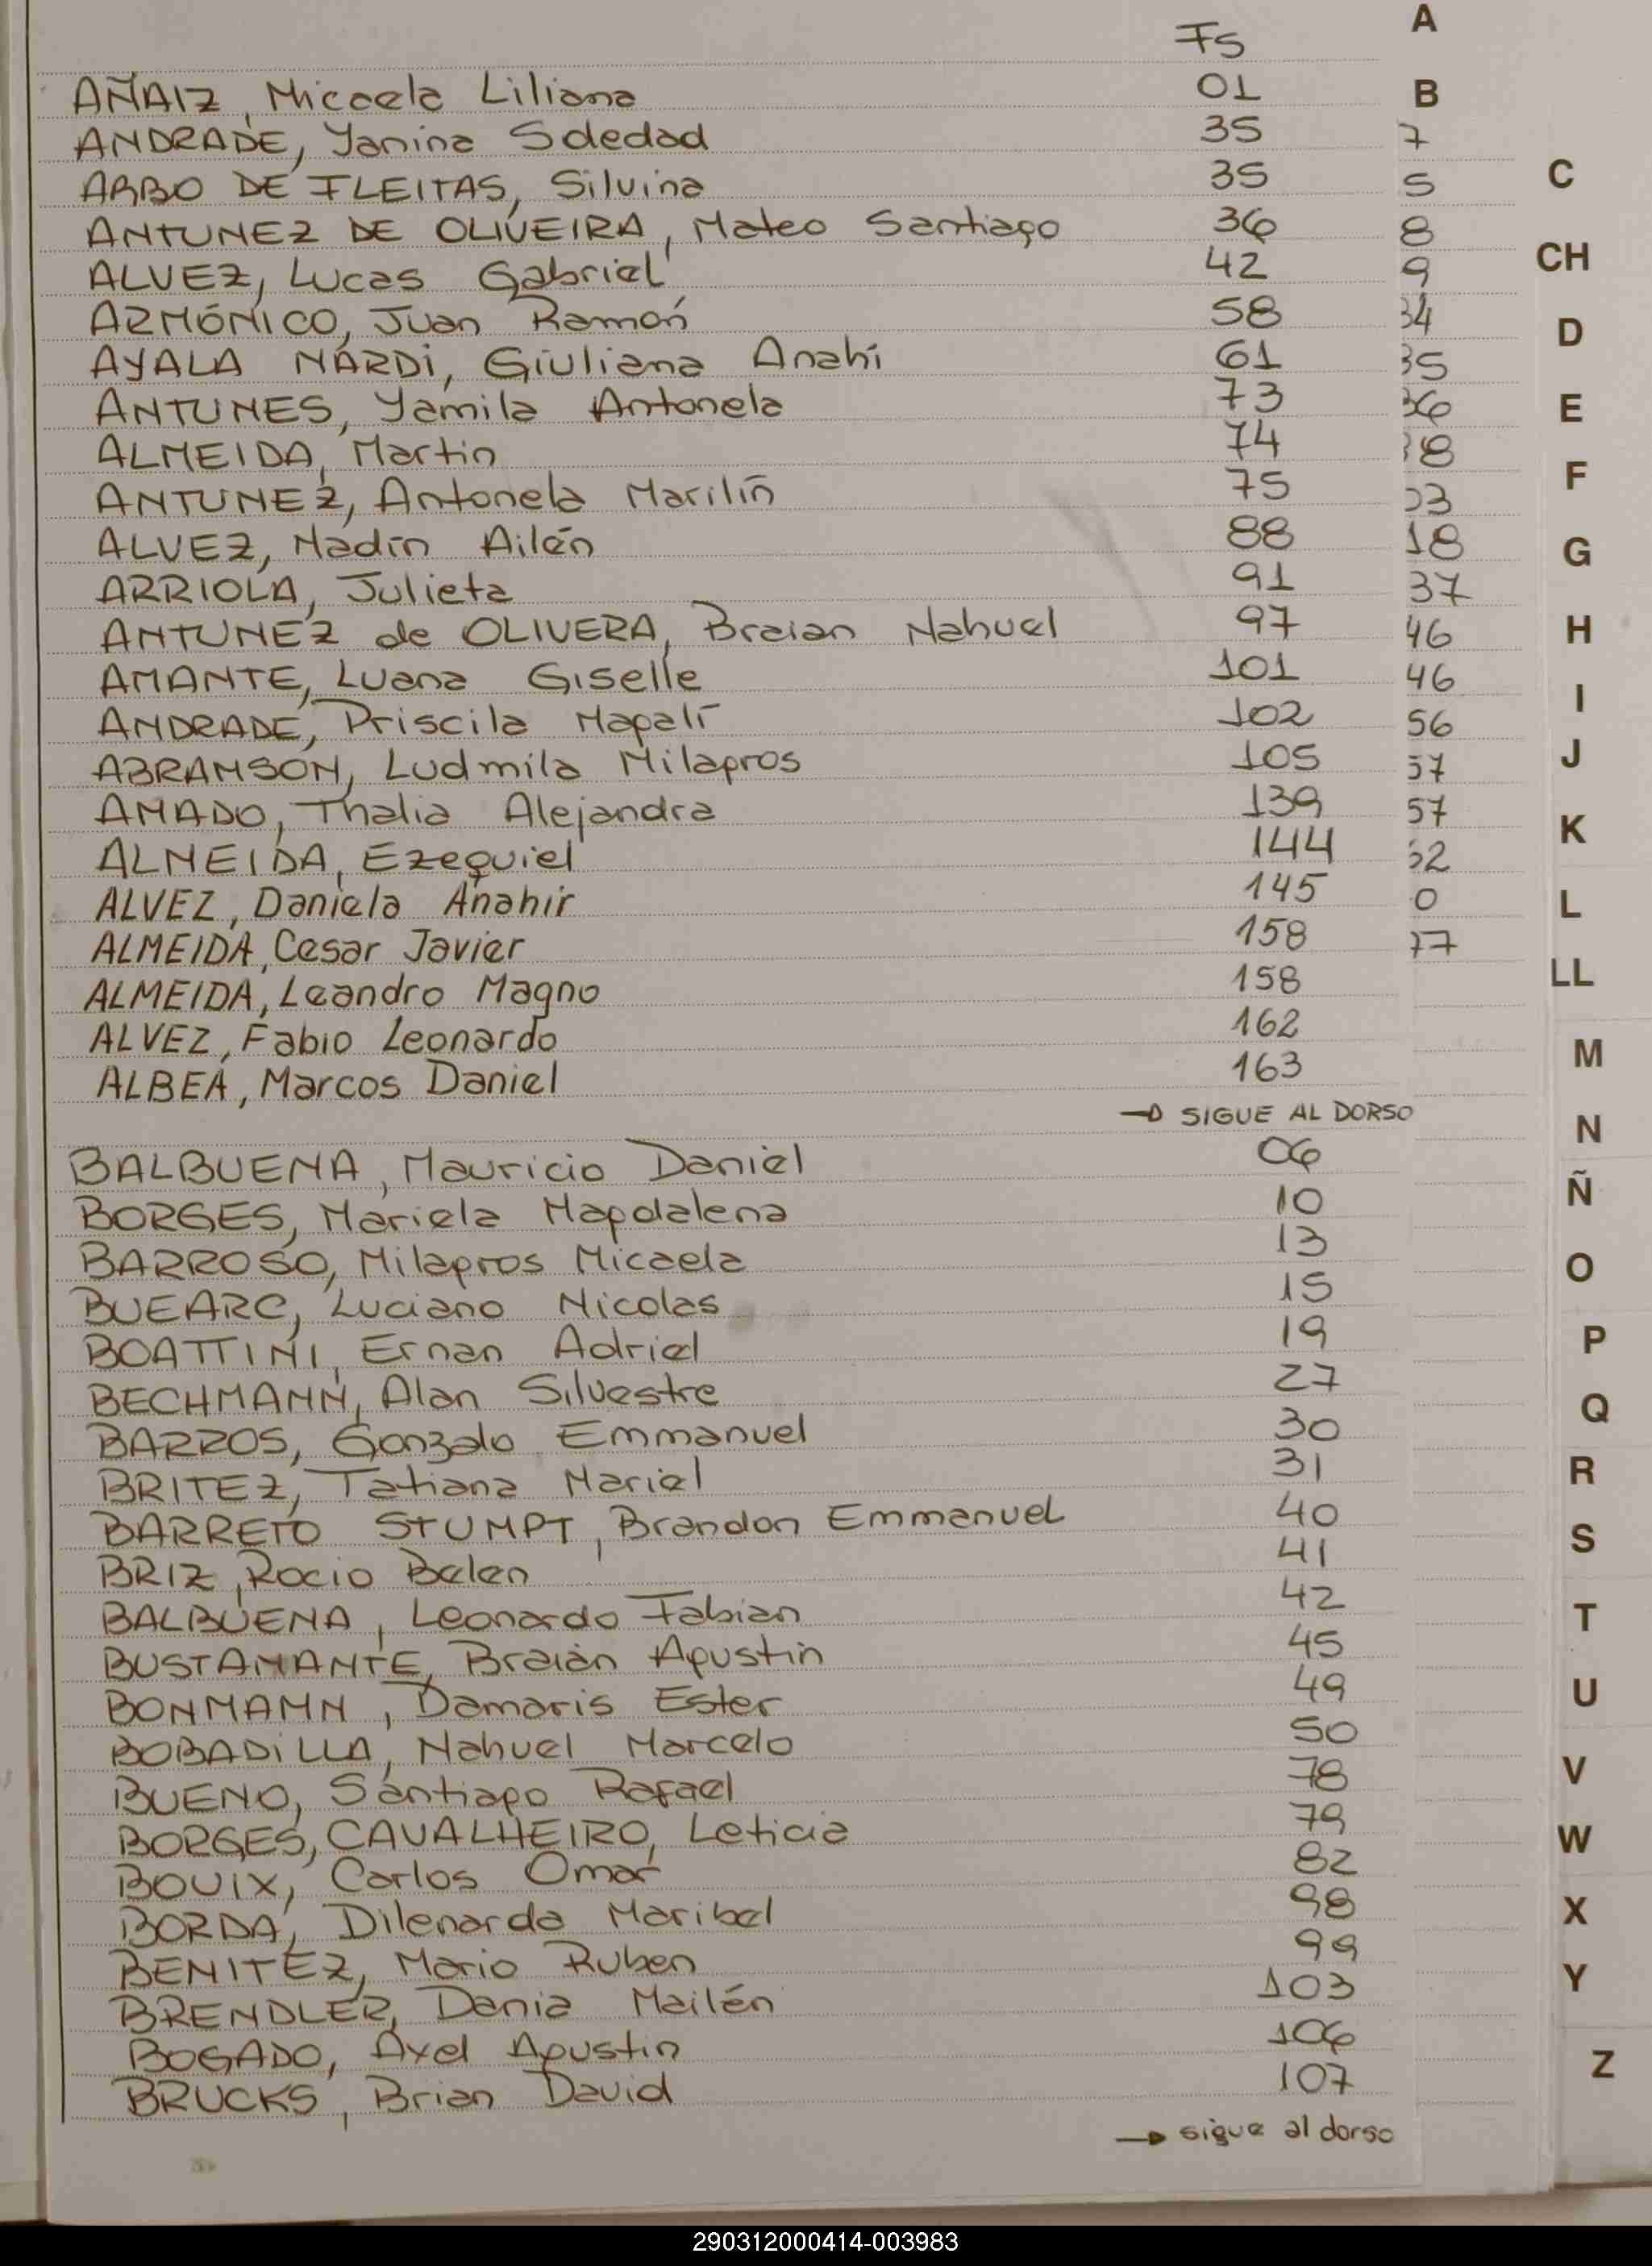 Fs
AÑAIZ, Micaela Liliana 01
ANDRADE, Yanina Soledad 35
ARBO DE FLEITAS, Silvina 35
ANTUNEZ DE OLIVEIRA, Mateo Santiago 36
ALVEZ, Lucas Gabriel 42
AZMÓNICO, Juan Ramón 58
AYALA NARDI, Giuliana Anahí 61
ANTUNES, Yamila Antonela 73
ALMEIDA, Martin 74
ANTUNEZ, Antonela Marilin 75
ALVEZ, Nadin Ailén 88
ARRIOLA, Julieta 91
ANTUNEZ de OLIVERA, Braian Nahuel 97
AMANTE, Luana Giselle 101
ANDRADE, Priscila Magalí 102
ABRAMSON, Ludmila Milagros 105
AMADO, Thalia Alejandra 139
ALMEIDA, Ezequiel 144
ALVEZ, Daniela Anahir 145
ALMEIDA, Cesar Javier 158
ALMEIDA, Leandro Magno 158
ALVEZ, Fabio Leonardo 162
ALBEA, Marcos Daniel 163
→ SIGUE AL DORSO
BALBUENA, Mauricio Daniel 06
BORGES, Mariela Magdalena 10
BARROSO, Milagros Micaela 13
BUEARC, Luciano Nicolas 15
BOATTINI, Ernan Adriel 19
BECHMANN, Alan Silvestre 27
BARROS, Gonzalo Emmanuel 30
BRITEZ, Tatiana Mariel 31
BARRETO STUMPT, Brandon Emmanuel 40
BRIZ, Rocio Belen 41
BALBUENA, Leonardo Fabian 42
BUSTAMANTE, Braian Agustin 45
BONMANN, Damaris Ester 49
BOBADILLA, Nahuel Marcelo 50
BUENO, Santiago Rafael 78
BORGES, CAVALHEIRO, Leticia 79
BOUIX, Carlos Omar 82
BORDA, Dilenarda Maribel 98
BENITEZ, Mario Ruben 99
BRENDLER, Dania Mailén 103
BOGADO, Axel Agustin 106
BRUCKS, Brian David 107
→ sigue al dorso
7
5
8
9
34
35
36
38
03
18
37
46
46
56
57
57
0
77
A
B
C
CH
D
E
F
G
H
I
J
K
L
LL
M
N
Ñ
O
P
Q
R
S
T
U
V
W
X
Y
Z
290312000414-003983